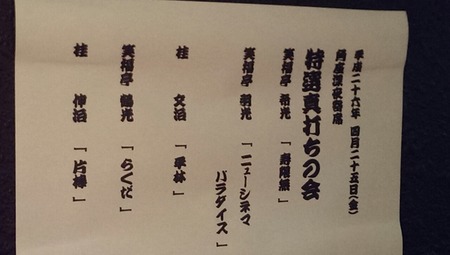 平成二十六年 四月二十五日(金)
角座深夜寄席
特選真打ちの会
笑福亭 希光 「寿限無」
笑福亭 羽光 「ニューシネマ
パラダイス」
桂 文治 「平林」
笑福亭 鶴光 「らくだ」
桂 伸治 「片棒」